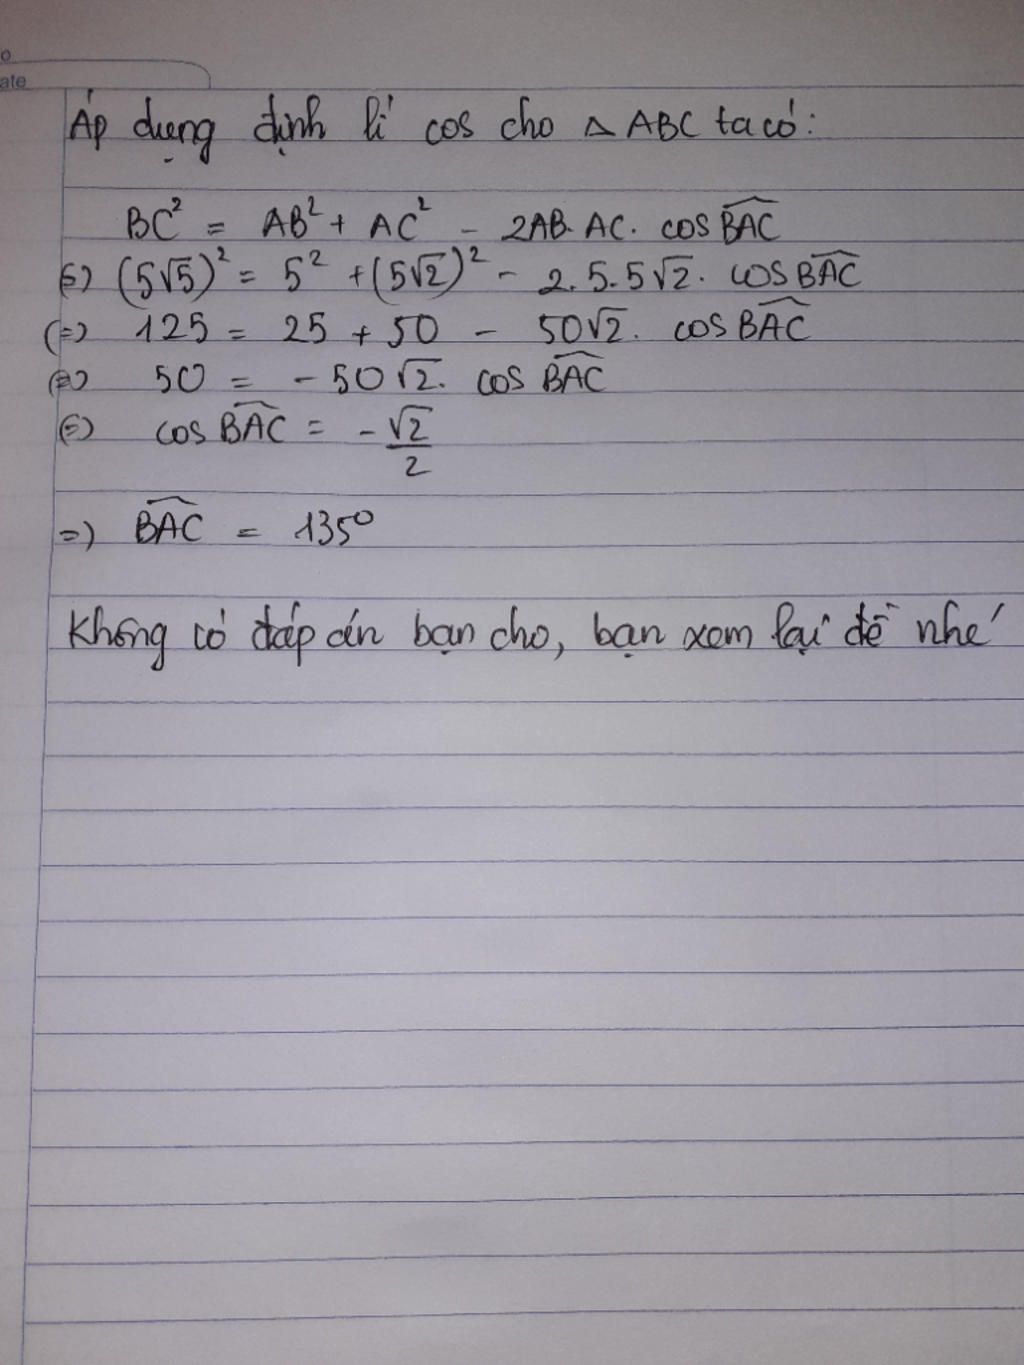 o
ate
Áp dụng định lí cos cho △ ABC ta có:
BC² = AB² + AC² - 2AB. AC. cos \widehat{BAC}
(=) (5√5)² = 5² + (5√2)² - 2. 5. 5√2. cos \widehat{BAC}
(=) 125 = 25 + 50 - 50√2. cos \widehat{BAC}
(=) 50 = - 50√2. cos \widehat{BAC}
(=) cos \widehat{BAC} = -√2/2
=) \widehat{BAC} = 135°
Không có đáp án bạn cho, bạn xem lại đề nhé